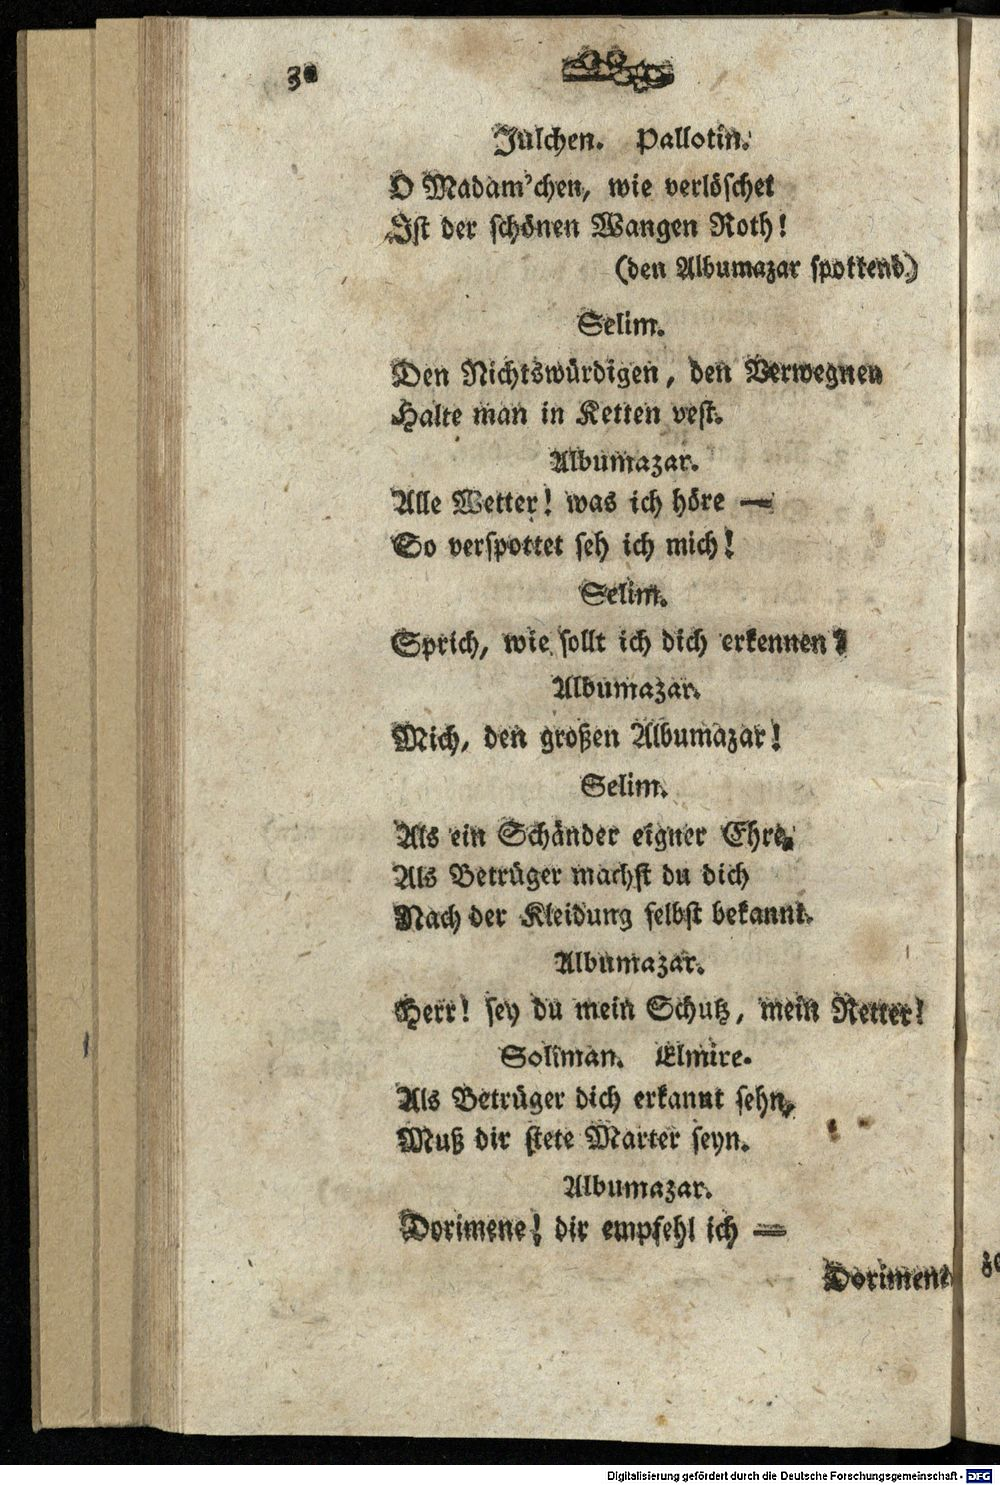 30
Julchen. Pallotin.
O Madam'chen, wie verlöschet
Ist der schönen Wangen Roth!
(den Albumazar spottend.)
Selim.
Den Nichtswürdigen, den Verwegnen
Halte man in Ketten vest.
Albumazar.
Alle Wetter! was ich höre —
So verspottet seh ich mich!
Selim.
Sprich, wie sollt ich dich erkennen?
Albumazar.
Mich, den großen Albumazar!
Selim.
Als ein Schänder eigner Ehre,
Als Betrüger machst du dich
Nach der Kleidung selbst bekannt.
Albumazar.
Herr! sey du mein Schutz, mein Retter!
Soliman. Elmire.
Als Betrüger dich erkannt sehn,
Muß dir stete Marter seyn.
Albumazar.
Dorimene! dir empfehl ich —
Dorimene
Digitalisierung gefördert durch die Deutsche Forschungsgemeinschaft - DFG